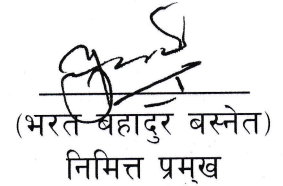 (भरत बहादुर बस्नेत)
निमित्त प्रमुख